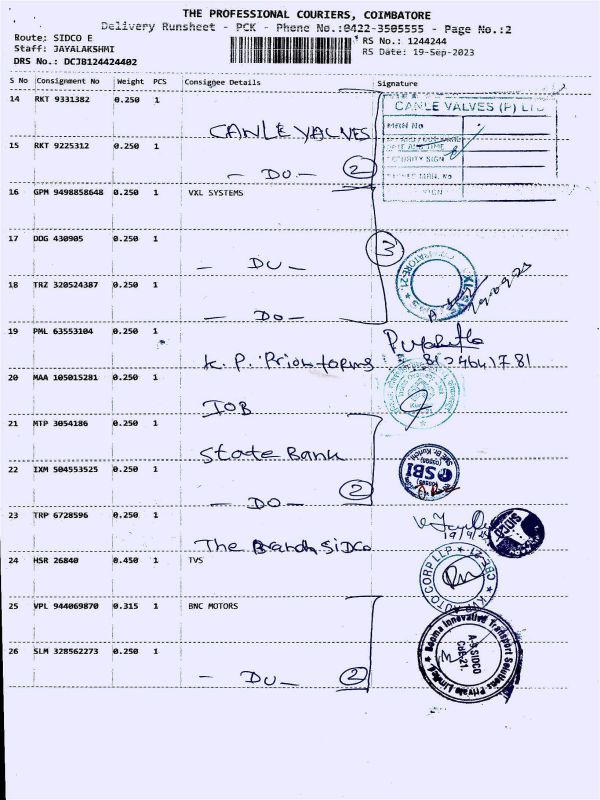 THE PROFESSIONAL COURIERS, COIMBATORE
Delivery Runsheet - PCK - Phone No.:0422-3505555 - Page No.:2
Route: SIDCO E
RS No.: 1244244
Staff: JAYALAKSHMI
RS Date: 19-Sep-2023
DRS No.: DCJB124424402
S No Consignment No Weight PCS Consignee Details Signature
14 RKT 9331382 0.250 1
CANLE VALVES (P) LTD
CANLE VALVES
MRN No
15 RKT 9225312 0.250 1
DATE AND TIME
SECURITY SIGN
- DO - 2
SIGN
16 GPM 9498858648 0.250 1 VXL SYSTEMS
17 DDG 430905 0.250 1
3
- DU -
18 TRZ 320524387 0.250 1
- DO -
19 PML 63553104 0.250 1
K. P. 8124641781
20 MAA 105015281 0.250 1
IOB
21 MTP 3054186 0.250 1
State Bank
22 IXM 504553525 0.250 1
SBI
- DO - 2
23 TRP 6728596 0.250 1
19/9/23
SIDCO
The Branch, SIDCO
24 HSR 26840 0.450 1 TVS
KVR AUTOCORP LLP
CBE-21
25 VPL 944069870 0.315 1 BNC MOTORS
Booma Innovative Transport Solutions Private Limited
A-9, SIDCO
CBE-21.
26 SLM 328562273 0.250 1
- DU - 2